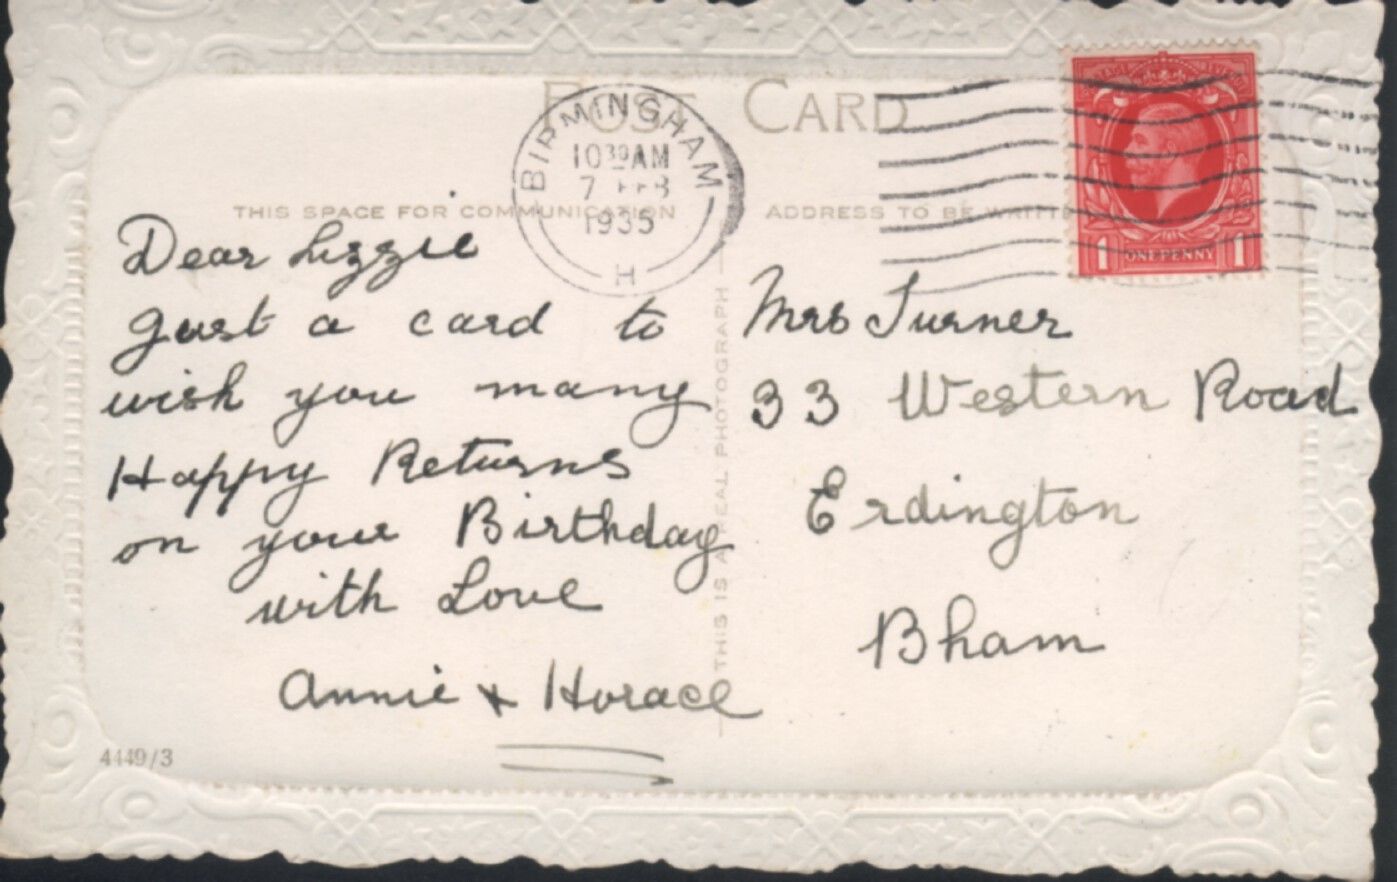 POST CARD
BIRMINGHAM
10 30 AM
7 FEB
1935
H
THIS SPACE FOR COMMUNICATION
ADDRESS TO BE WRITTE
Dear Lizzie
Just a card to
wish you many
Happy Returns
on your Birthday
with Love
Annie + Horace
4449/3
THIS IS A REAL PHOTOGRAPH
1 ONE PENNY 1
Mrs Turner
33 Western Road
Erdington
Bham